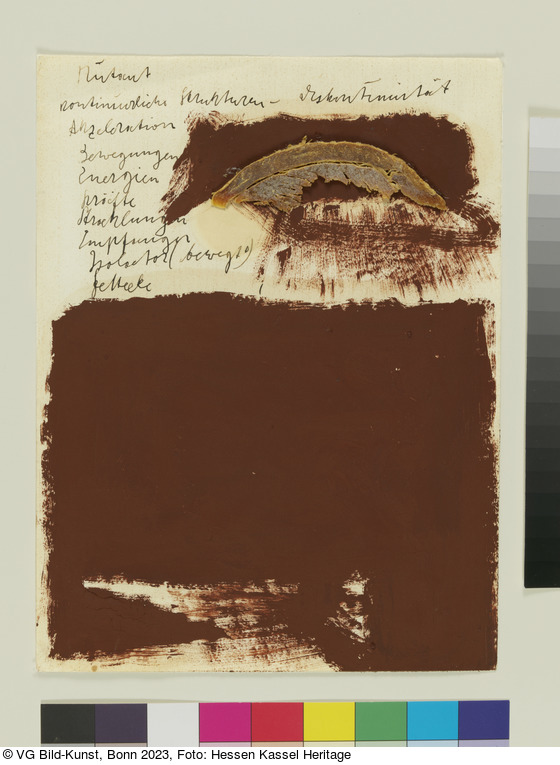 Mutant
kontinuierliche Strukturen – diskontinuität
Akzeleration
Bewegungen
Energien
Kräfte
Strahlungen
Empfänger
Isolator (bewegt)
Fettecke
© VG Bild-Kunst, Bonn 2023, Foto: Hessen Kassel Heritage